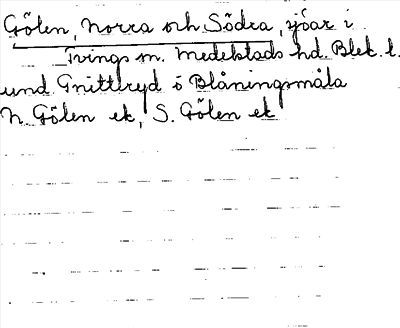 Gölen, Norra och Södra, sjöar i
Tvings sn. Medelstads hd. Blek. l.
und Gnittlryd o Blåningsmåla
N. Gölen ek, S. Gölen ek